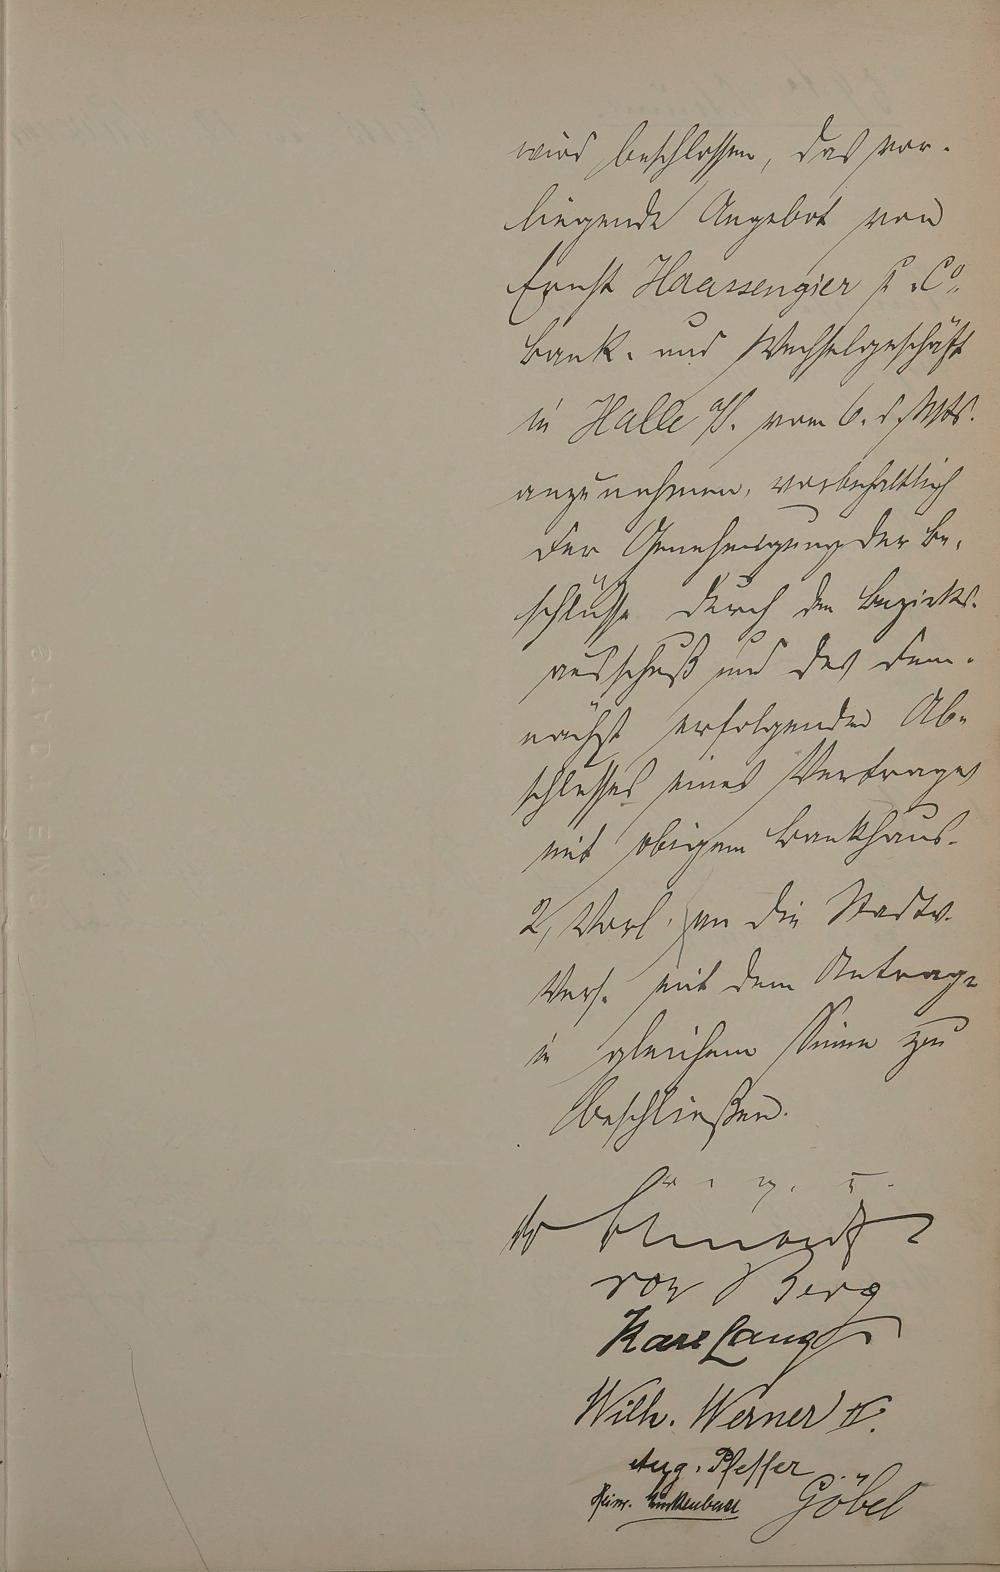 wird beschlossen, das vor-
liegende Angebot von
Ernst Haassengier u. Co.
Bank- und Wechselgeschäft
in Halle a/S. vom 6. d. Mts.
anzunehmen, vorbehaltlich
der Genehmigung der Be-
schlüsse durch den Bezirks-
ausschuß und des dem-
nächst erfolgenden Ab-
schlusses eines Vertrages
mit obigem Bankhaus.
2, Vorl. an die Stadtv.
Vers. mit dem Antrage
in gleichem Sinne zu
beschließen.
von Berg
Karl Lang
Wilh. Werner IV.
Aug. Pfeffer
Heinr. Göbel